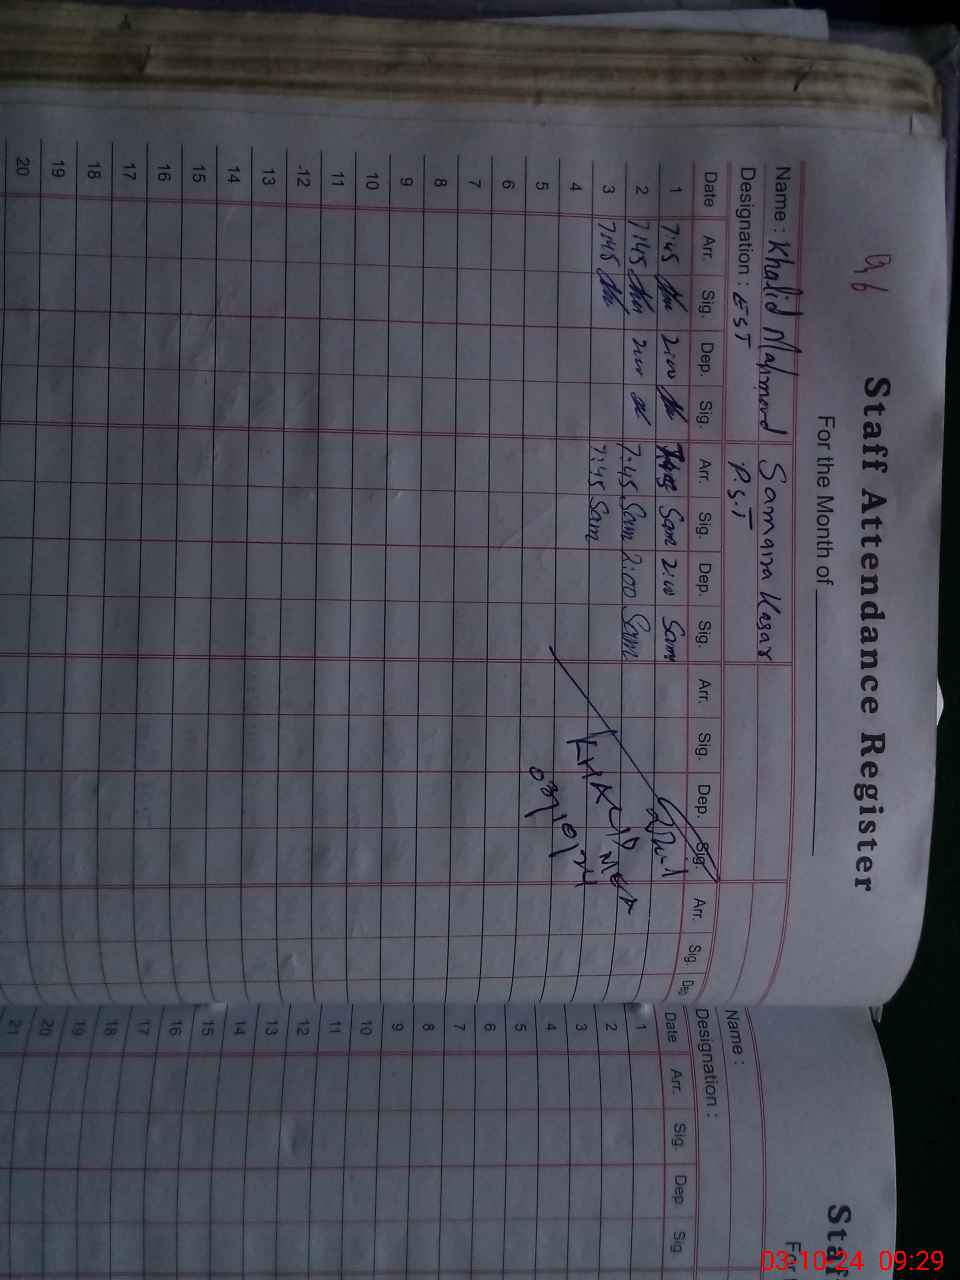 96
Staff Attendance Register
For the Month of
Name : Khalid Mahmood Samaira Kasar
Designation : EST P.S.T
Date Arr. Sig. Dep. Sig. Arr. Sig. Dep. Sig. Arr. Sig. Dep. Sig. Arr. Sig. Dep.
1 7:45 2:00 7:45 Sam 2:00 Sam
2 7:45 2:00 7:45 Sam 2:00 Sam
3 7:45 7:45 Sam
4
5
6
7
8
9
10
11
12
13
14
15
16
17
18
19
20
03/10/24
Staf
For
Name :
Designation :
Date Arr. Sig. Dep. Sig.
1
2
3
4
5
6
7
8
9
10
11
12
13
14
15
16
17
18
19
20
21
03-10-24 09:29